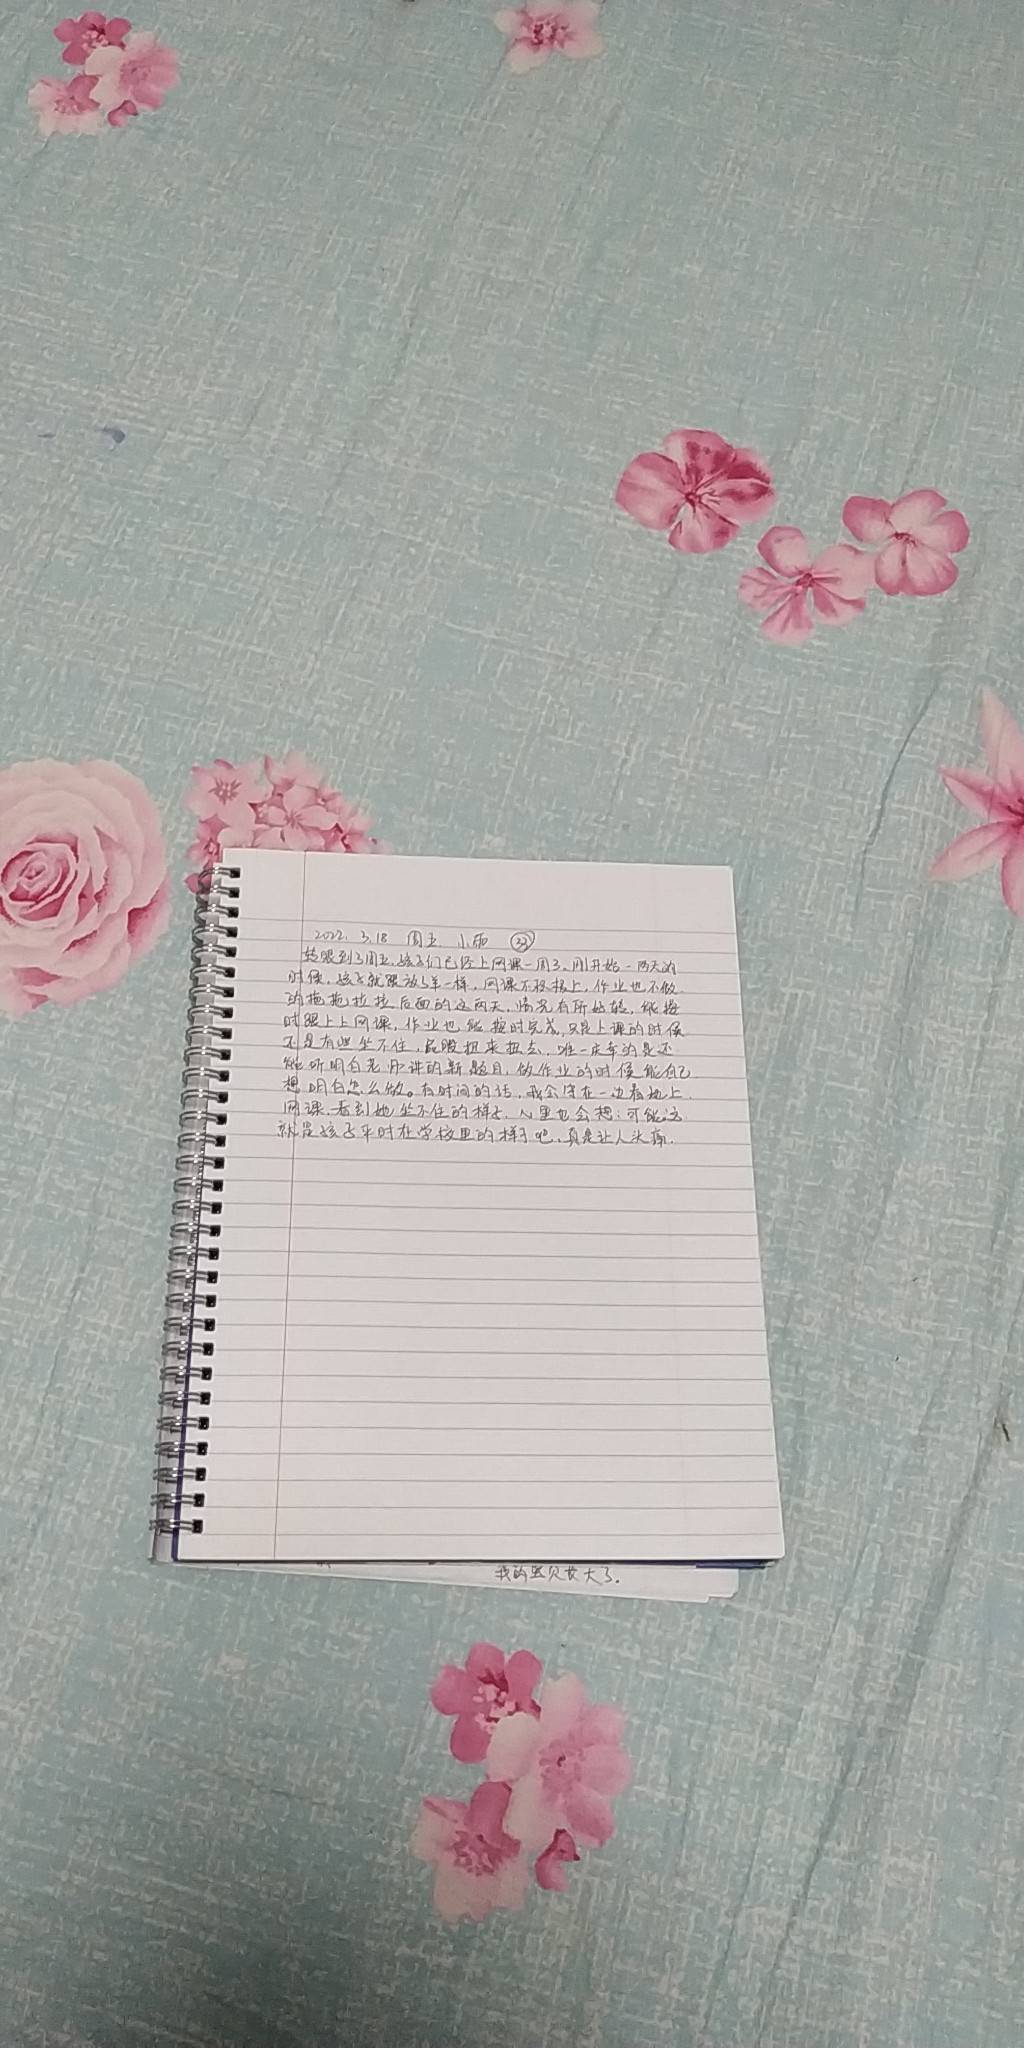 2022. 3.18 周五 小雨 ㉝
转眼到了周五,孩子们已经上网课一周了。刚开始一两天的
时候,孩子就跟放了羊一样,网课不积极上,作业也不做
的拖拖拉拉,后面的这两天,情况有所好转,能按
时跟上上网课,作业也能按时完成,只是上课的时候
还是有些坐不住,屁股扭来扭去,唯一庆幸的是还
能听明白老师讲的新题目,做作业的时候能自己
想明白怎么做。有时间的话,我会守在一边看她上
网课,看到她坐不住的样子,心里也会想:可能这
就是孩子平时在学校里的样子吧,真是让人头痛.
我的宝贝长大了.